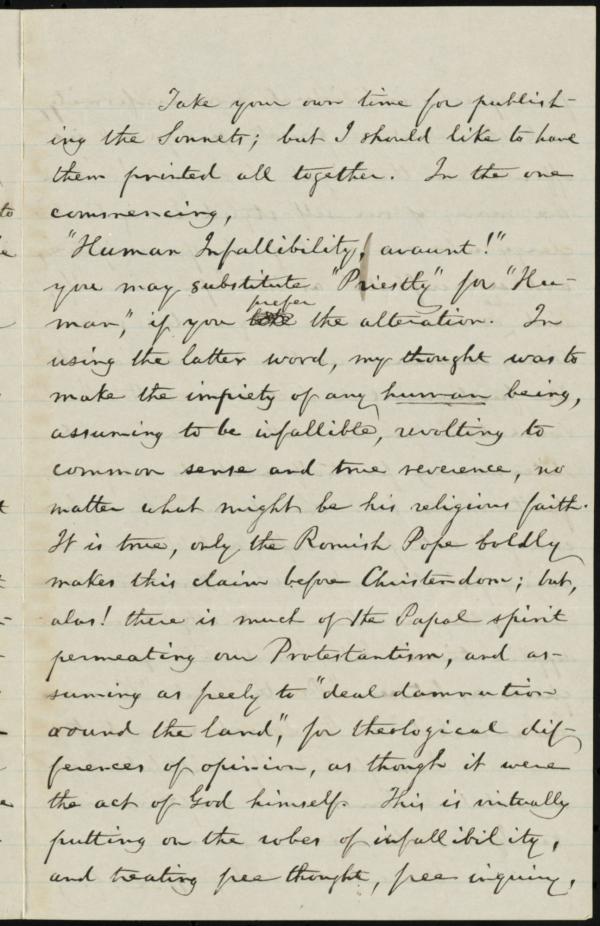 Take your own time for publish-
ing the Sonnets; but I should like to have
them printed all together. In the one
commencing,
"Human Infallibility, avaunt!"
you may substitute "Priestly" for "Hu-
man," if you prefer the alteration. In
using the latter word, my thought was to
make the impiety of any human being,
assuming to be infallible, revolting to
common sense and true reverence, no
matter what might be his religious faith.
It is true, only the Romish Pope boldly
makes this claim before Christendom; but,
alas! there is much of the Papal spirit
permeating our Protestantism, and as-
suming as freely to "deal damnation
around the land," for theological dif-
ferences of opinion, as though it were
the act of God himself. This is virtually
putting on the robes of infallibility,
and treating free thought, free inquiry,